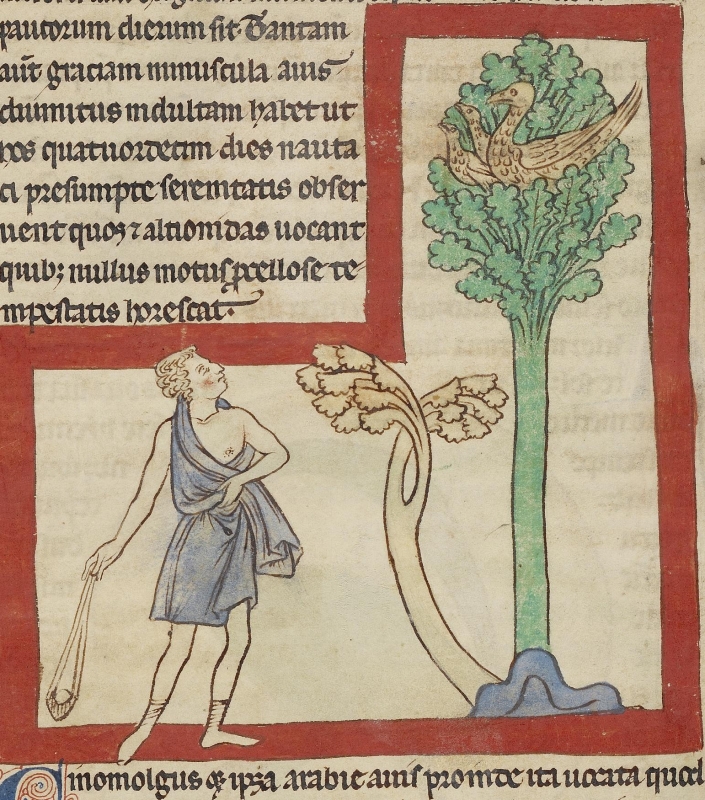 paucorum dierum sit. Tantam
aut̄ graciam minuscula auis
diuinitus indultam habet ut
hos quatuordecim dies nauta
ci presumpte serenitatis obser
uent quos ⁊ altionidas uocant
quib; nullus motus ꝓcellose te
mpestatis horescat.
Cinomolgus ⁊ ipsa arabie auis proinde ita uocata quod